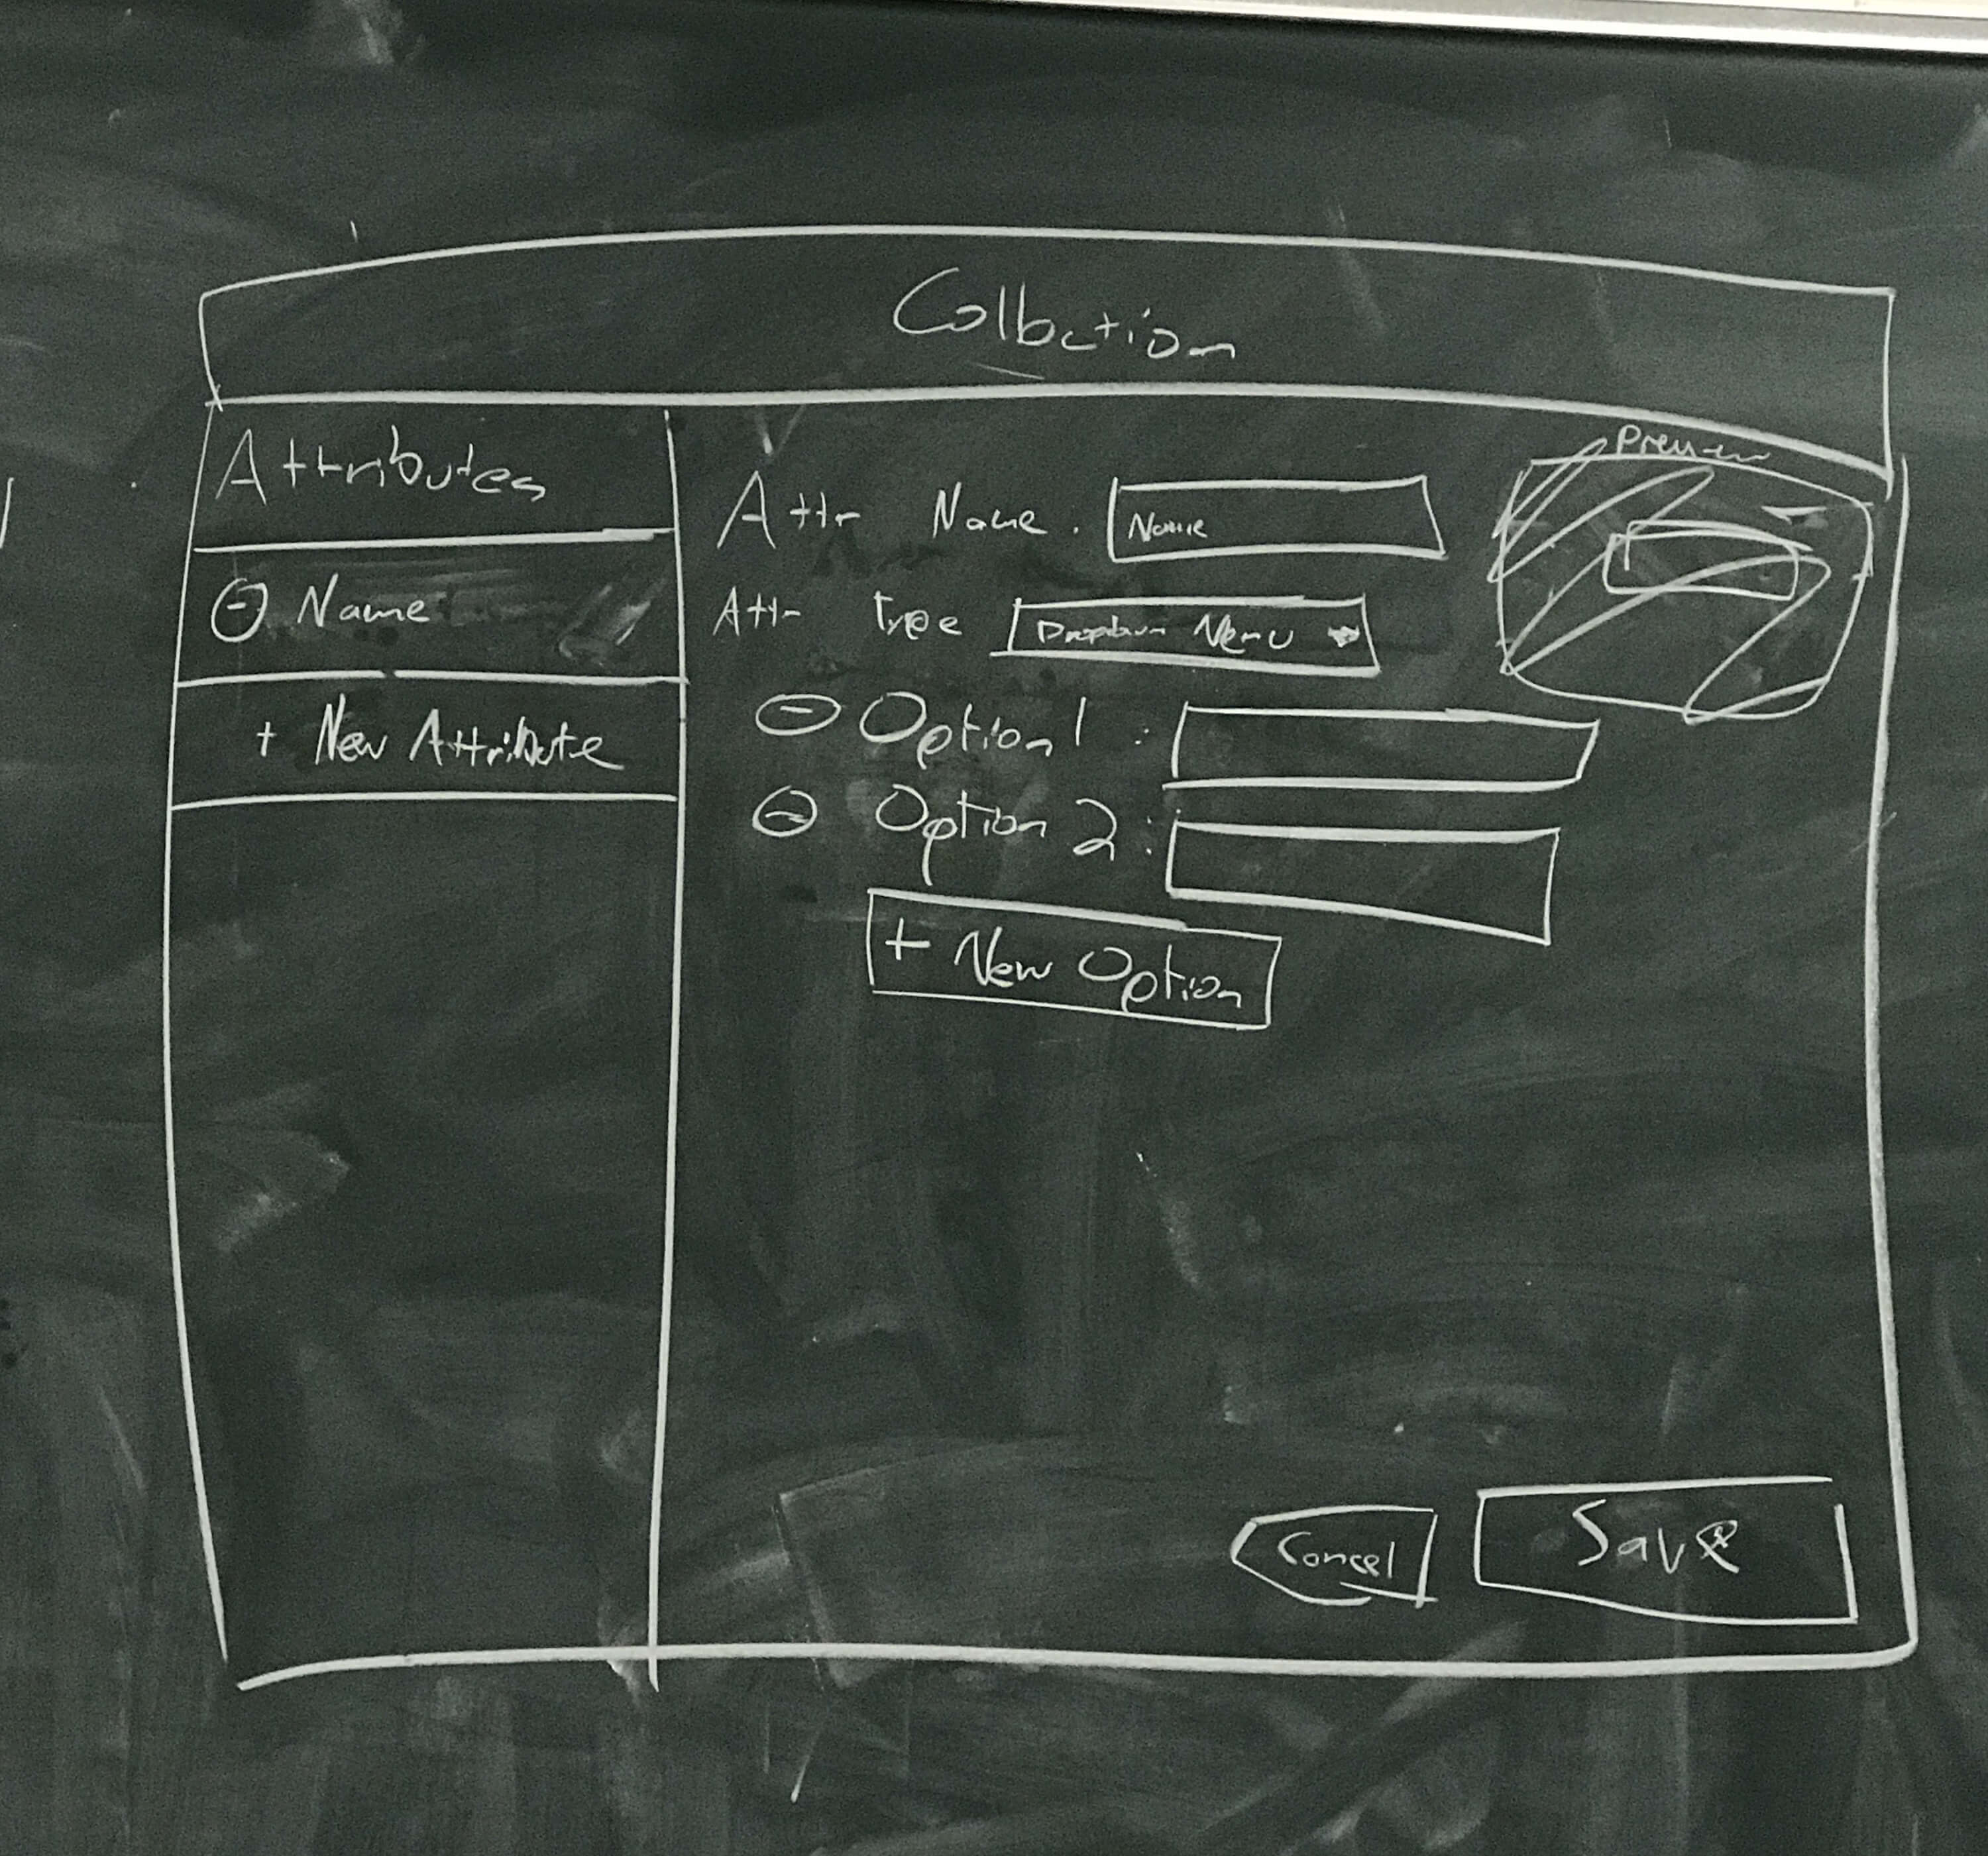 Collection
Attributes
⊖ Name
+ New Attribute
Attr Name: Name
Attr Type Dropdown Menu
⊖ Option 1 :
⊖ Option 2 :
+ New Option
Preview
Cancel
Save